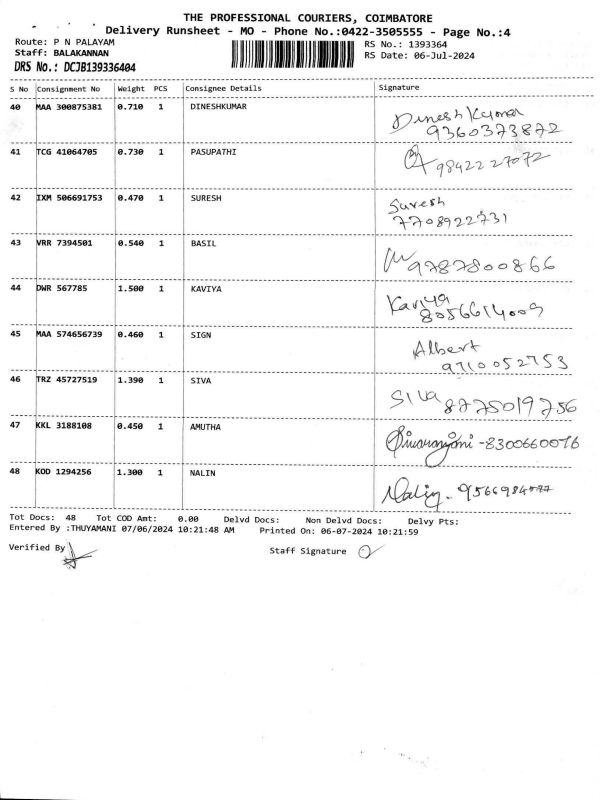 THE PROFESSIONAL COURIERS, COIMBATORE
Delivery Runsheet - MO - Phone No.:0422-3505555 - Page No.:4
Route: P N PALAYAM
Staff: BALAKANNAN
DRS No.: DCJB139336404
RS No.: 1393364
RS Date: 06-Jul-2024
S No Consignment No Weight PCS Consignee Details Signature
40 MAA 300875381 0.710 1 DINESHKUMAR Dinesh Kumar
9360373872
41 TCG 41064705 0.730 1 PASUPATHI 9842227072
42 IXM 506691753 0.470 1 SURESH Suresh
7708922731
43 VRR 7394501 0.540 1 BASIL 9787800866
44 DWR 567785 1.500 1 KAVIYA Kaviya
8056614009
45 MAA 574656739 0.460 1 SIGN Albert
9710052753
46 TRZ 45727519 1.390 1 SIVA SIVA 8775019756
47 KKL 3188108 0.450 1 AMUTHA -8300660076
48 KOD 1294256 1.300 1 NALIN Nalin -
Tot Docs: 48 Tot COD Amt: 0.00 Delvd Docs: Non Delvd Docs: Delvy Pts:
Entered By :THUYAMANI 07/06/2024 10:21:48 AM Printed On: 06-07-2024 10:21:59
Verified By
Staff Signature